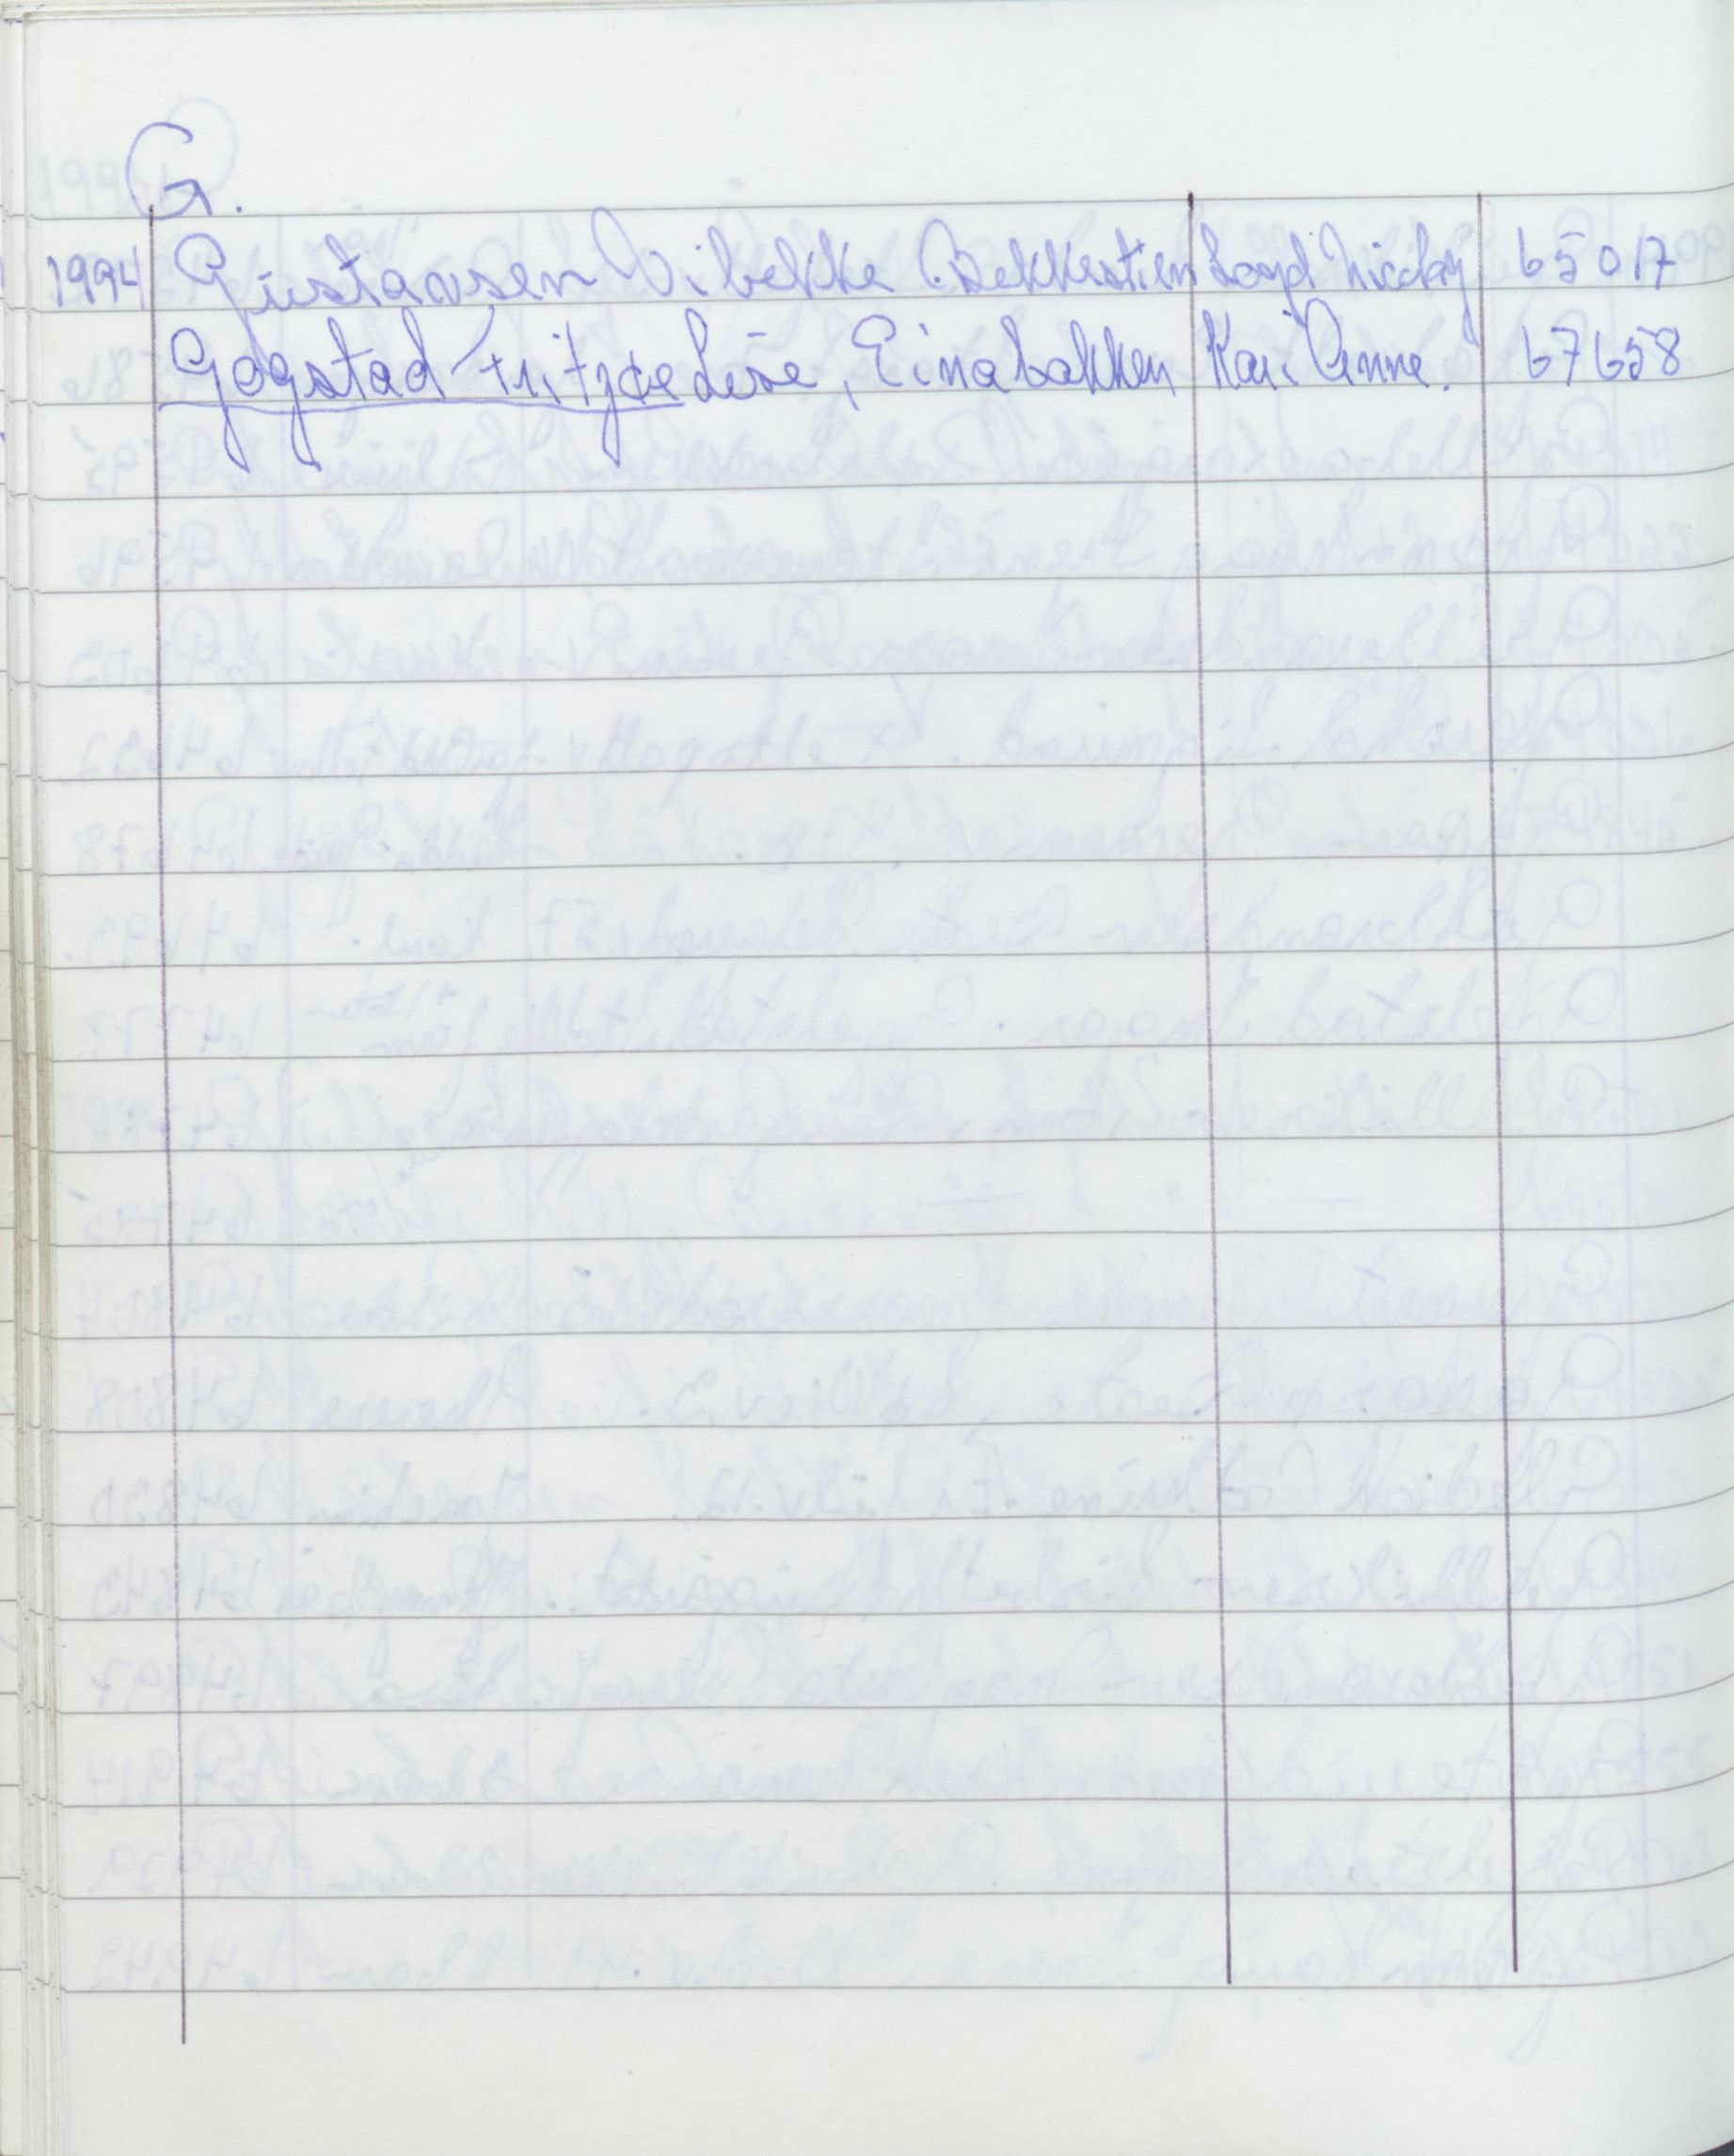 G.
1994 Gustavsen Vibekke Bekkestien Loyd Nicolay 65017
Gogstad Fritzøe Lise, Einabakken Kari Anne. 67658